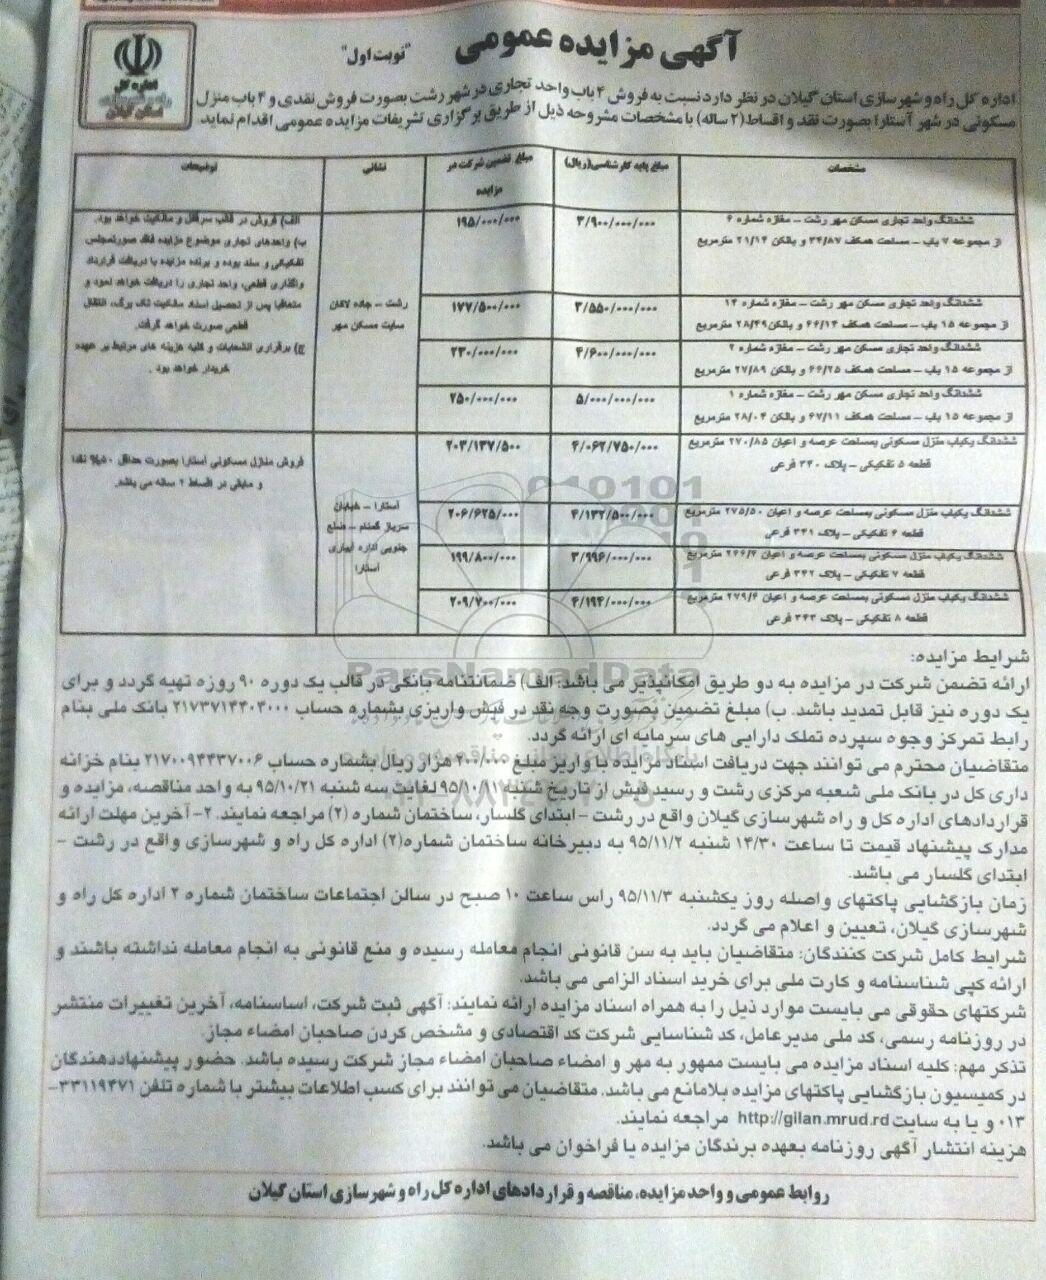 آگهی مزایده عمومی
"نوبت اول"
اداره کل
استان گیلان
اداره کل راه و شهرسازی استان گیلان در نظر دارد نسبت به فروش ۴ باب واحد تجاری در شهر رشت بصورت فروش نقدی و ۴ باب منزل
مسکونی در شهر آستارا بصورت نقد و اقساط (۲ ساله) با مشخصات مشروحه ذیل از طریق برگزاری تشریفات مزایده عمومی اقدام نماید.
مشخصات
مبلغ پایه کارشناسی(ریال)
مبلغ تضمین شرکت در مزایده
نشانی
توضیحات
ششدانگ واحد تجاری مسکن مهر رشت – مغازه شماره ۶
از مجموعه ۷ باب – مساحت همکف ۳۴/۸۷ و بالکن ۲۱/۱۴ مترمربع
۳/۹۰۰/۰۰۰/۰۰۰
۱۹۵/۰۰۰/۰۰۰
ششدانگ واحد تجاری مسکن مهر رشت – مغازه شماره ۱۴
از مجموعه ۱۵ باب – مساحت همکف ۶۶/۱۴ و بالکن ۲۸/۴۹ مترمربع
۳/۵۵۰/۰۰۰/۰۰۰
۱۷۷/۵۰۰/۰۰۰
ششدانگ واحد تجاری مسکن مهر رشت – مغازه شماره ۲
از مجموعه ۱۵ باب – مساحت همکف ۶۶/۲۵ و بالکن ۲۷/۸۹ مترمربع
۴/۶۰۰/۰۰۰/۰۰۰
۲۳۰/۰۰۰/۰۰۰
ششدانگ واحد تجاری مسکن مهر رشت – مغازه شماره ۱
از مجموعه ۱۵ باب – مساحت همکف ۶۷/۱۱ و بالکن ۲۸/۰۴ مترمربع
۵/۰۰۰/۰۰۰/۰۰۰
۲۵۰/۰۰۰/۰۰۰
رشت – جاده لاکان
سایت مسکن مهر
الف) فروش در قالب سرقفلی و مالکیت خواهد بود.
ب) واحدهای تجاری موضوع مزایده فاقد صورتمجلس
تفکیکی و سند بوده و برنده مزایده با دریافت قرارداد
واگذاری قطعی، واحد تجاری را دریافت خواهد نمود و
متعاقبا پس از تحصیل اسناد مالکیت تک برگ، انتقال
قطعی صورت خواهد گرفت.
ج) برقراری انشعابات و کلیه هزینه های مرتبط بر عهده
خریدار خواهد بود .
ششدانگ یکباب منزل مسکونی بمساحت عرصه و اعیان ۲۷۰/۸۵ مترمربع
قطعه ۵ تفکیکی – پلاک ۳۴۰ فرعی
۴/۰۶۲/۷۵۰/۰۰۰
۲۰۳/۱۳۷/۵۰۰
ششدانگ یکباب منزل مسکونی بمساحت عرصه و اعیان ۲۷۵/۵۰ مترمربع
قطعه ۶ تفکیکی – پلاک ۳۴۱ فرعی
۴/۱۳۲/۵۰۰/۰۰۰
۲۰۶/۶۲۵/۰۰۰
ششدانگ یکباب منزل مسکونی بمساحت عرصه و اعیان ۲۶۶/۴ مترمربع
قطعه ۷ تفکیکی – پلاک ۳۴۲ فرعی
۳/۹۹۶/۰۰۰/۰۰۰
۱۹۹/۸۰۰/۰۰۰
ششدانگ یکباب منزل مسکونی بمساحت عرصه و اعیان ۲۷۹/۶ مترمربع
قطعه ۸ تفکیکی – پلاک ۳۴۳ فرعی
۴/۱۹۴/۰۰۰/۰۰۰
۲۰۹/۷۰۰/۰۰۰
آستارا – خیابان
سرباز گمنام – ضلع
جنوبی اداره آبیاری
آستارا
فروش منازل مسکونی آستارا بصورت حداقل ۵۰% نقدا
و مابقی در اقساط ۲ ساله می باشد.
ParsNamadData
شرایط مزایده:
ارائه تضمن شرکت در مزایده به دو طریق امکانپذیر می باشد: الف) ضمانتنامه بانکی در قالب یک دوره ۹۰ روزه تهیه گردد و برای
یک دوره نیز قابل تمدید باشد. ب) مبلغ تضمین بصورت وجه نقد در فیش واریزی بشماره حساب ۲۱۷۳۷۱۴۴۰۴۰۰۰ بانک ملی بنام
رابط تمرکز وجوه سپرده تملک دارایی های سرمایه ای ارائه گردد.
متقاضیان محترم می توانند جهت دریافت اسناد مزایده با واریز مبلغ ۲۰۰/۰۰۰ هزار ریال بشماره حساب ۲۱۷۰۰۹۴۴۳۷۰۰۶ بنام خزانه
داری کل در بانک ملی شعبه مرکزی رشت و رسید فیش از تاریخ شنبه ۹۵/۱۰/۱۱ لغایت سه شنبه ۹۵/۱۰/۲۱ به واحد مناقصه، مزایده و
قراردادهای اداره کل و راه شهرسازی گیلان واقع در رشت – ابتدای گلسار، ساختمان شماره (۲) مراجعه نمایند. ۲- آخرین مهلت ارائه
مدارک پیشنهاد قیمت تا ساعت ۱۴/۳۰ شنبه ۹۵/۱۱/۲ به دبیرخانه ساختمان شماره(۲) اداره کل راه و شهرسازی واقع در رشت –
ابتدای گلسار می باشد.
زمان بازگشایی پاکتهای واصله روز یکشنبه ۹۵/۱۱/۳ راس ساعت ۱۰ صبح در سالن اجتماعات ساختمان شماره ۲ اداره کل راه و
شهرسازی گیلان، تعیین و اعلام می گردد.
شرایط کامل شرکت کنندگان: متقاضیان باید به سن قانونی انجام معامله رسیده و منع قانونی به انجام معامله نداشته باشند و
ارائه کپی شناسنامه و کارت ملی برای خرید اسناد الزامی می باشد.
شرکتهای حقوقی می بایست موارد ذیل را به همراه اسناد مزایده ارائه نمایند: آگهی ثبت شرکت، اساسنامه، آخرین تغییرات منتشر
در روزنامه رسمی، کد ملی مدیرعامل، کد شناسایی شرکت کد اقتصادی و مشخص کردن صاحبان امضاء مجاز.
تذکر مهم: کلیه اسناد مزایده می بایست ممهور به مهر و امضاء صاحبان امضاء مجاز شرکت رسیده باشد. حضور پیشنهاددهندگان
در کمیسیون بازگشایی پاکتهای مزایده بلامانع می باشد. متقاضیان می توانند برای کسب اطلاعات بیشتر با شماره تلفن ۳۳۱۱۹۴۷۱-
۰۱۳ و یا به سایت http://gilan.mrud.rd مراجعه نمایند.
هزینه انتشار آگهی روزنامه بعهده برندگان مزایده یا فراخوان می باشد.
روابط عمومی و واحد مزایده، مناقصه و قراردادهای اداره کل راه و شهرسازی استان گیلان